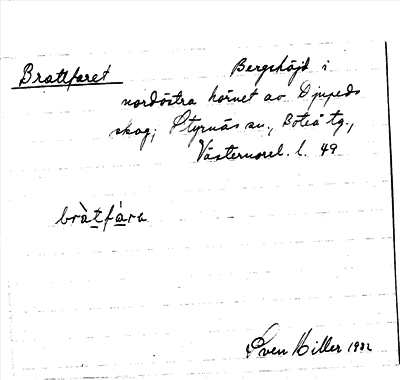 Brattfaret Bergshöjd i
nordöstra hörnet av Djupeds
skog; Styrnäs sn., Boteå tg.,
Västernorrl. l. 49
bràtfára
Sven Hiller 1932